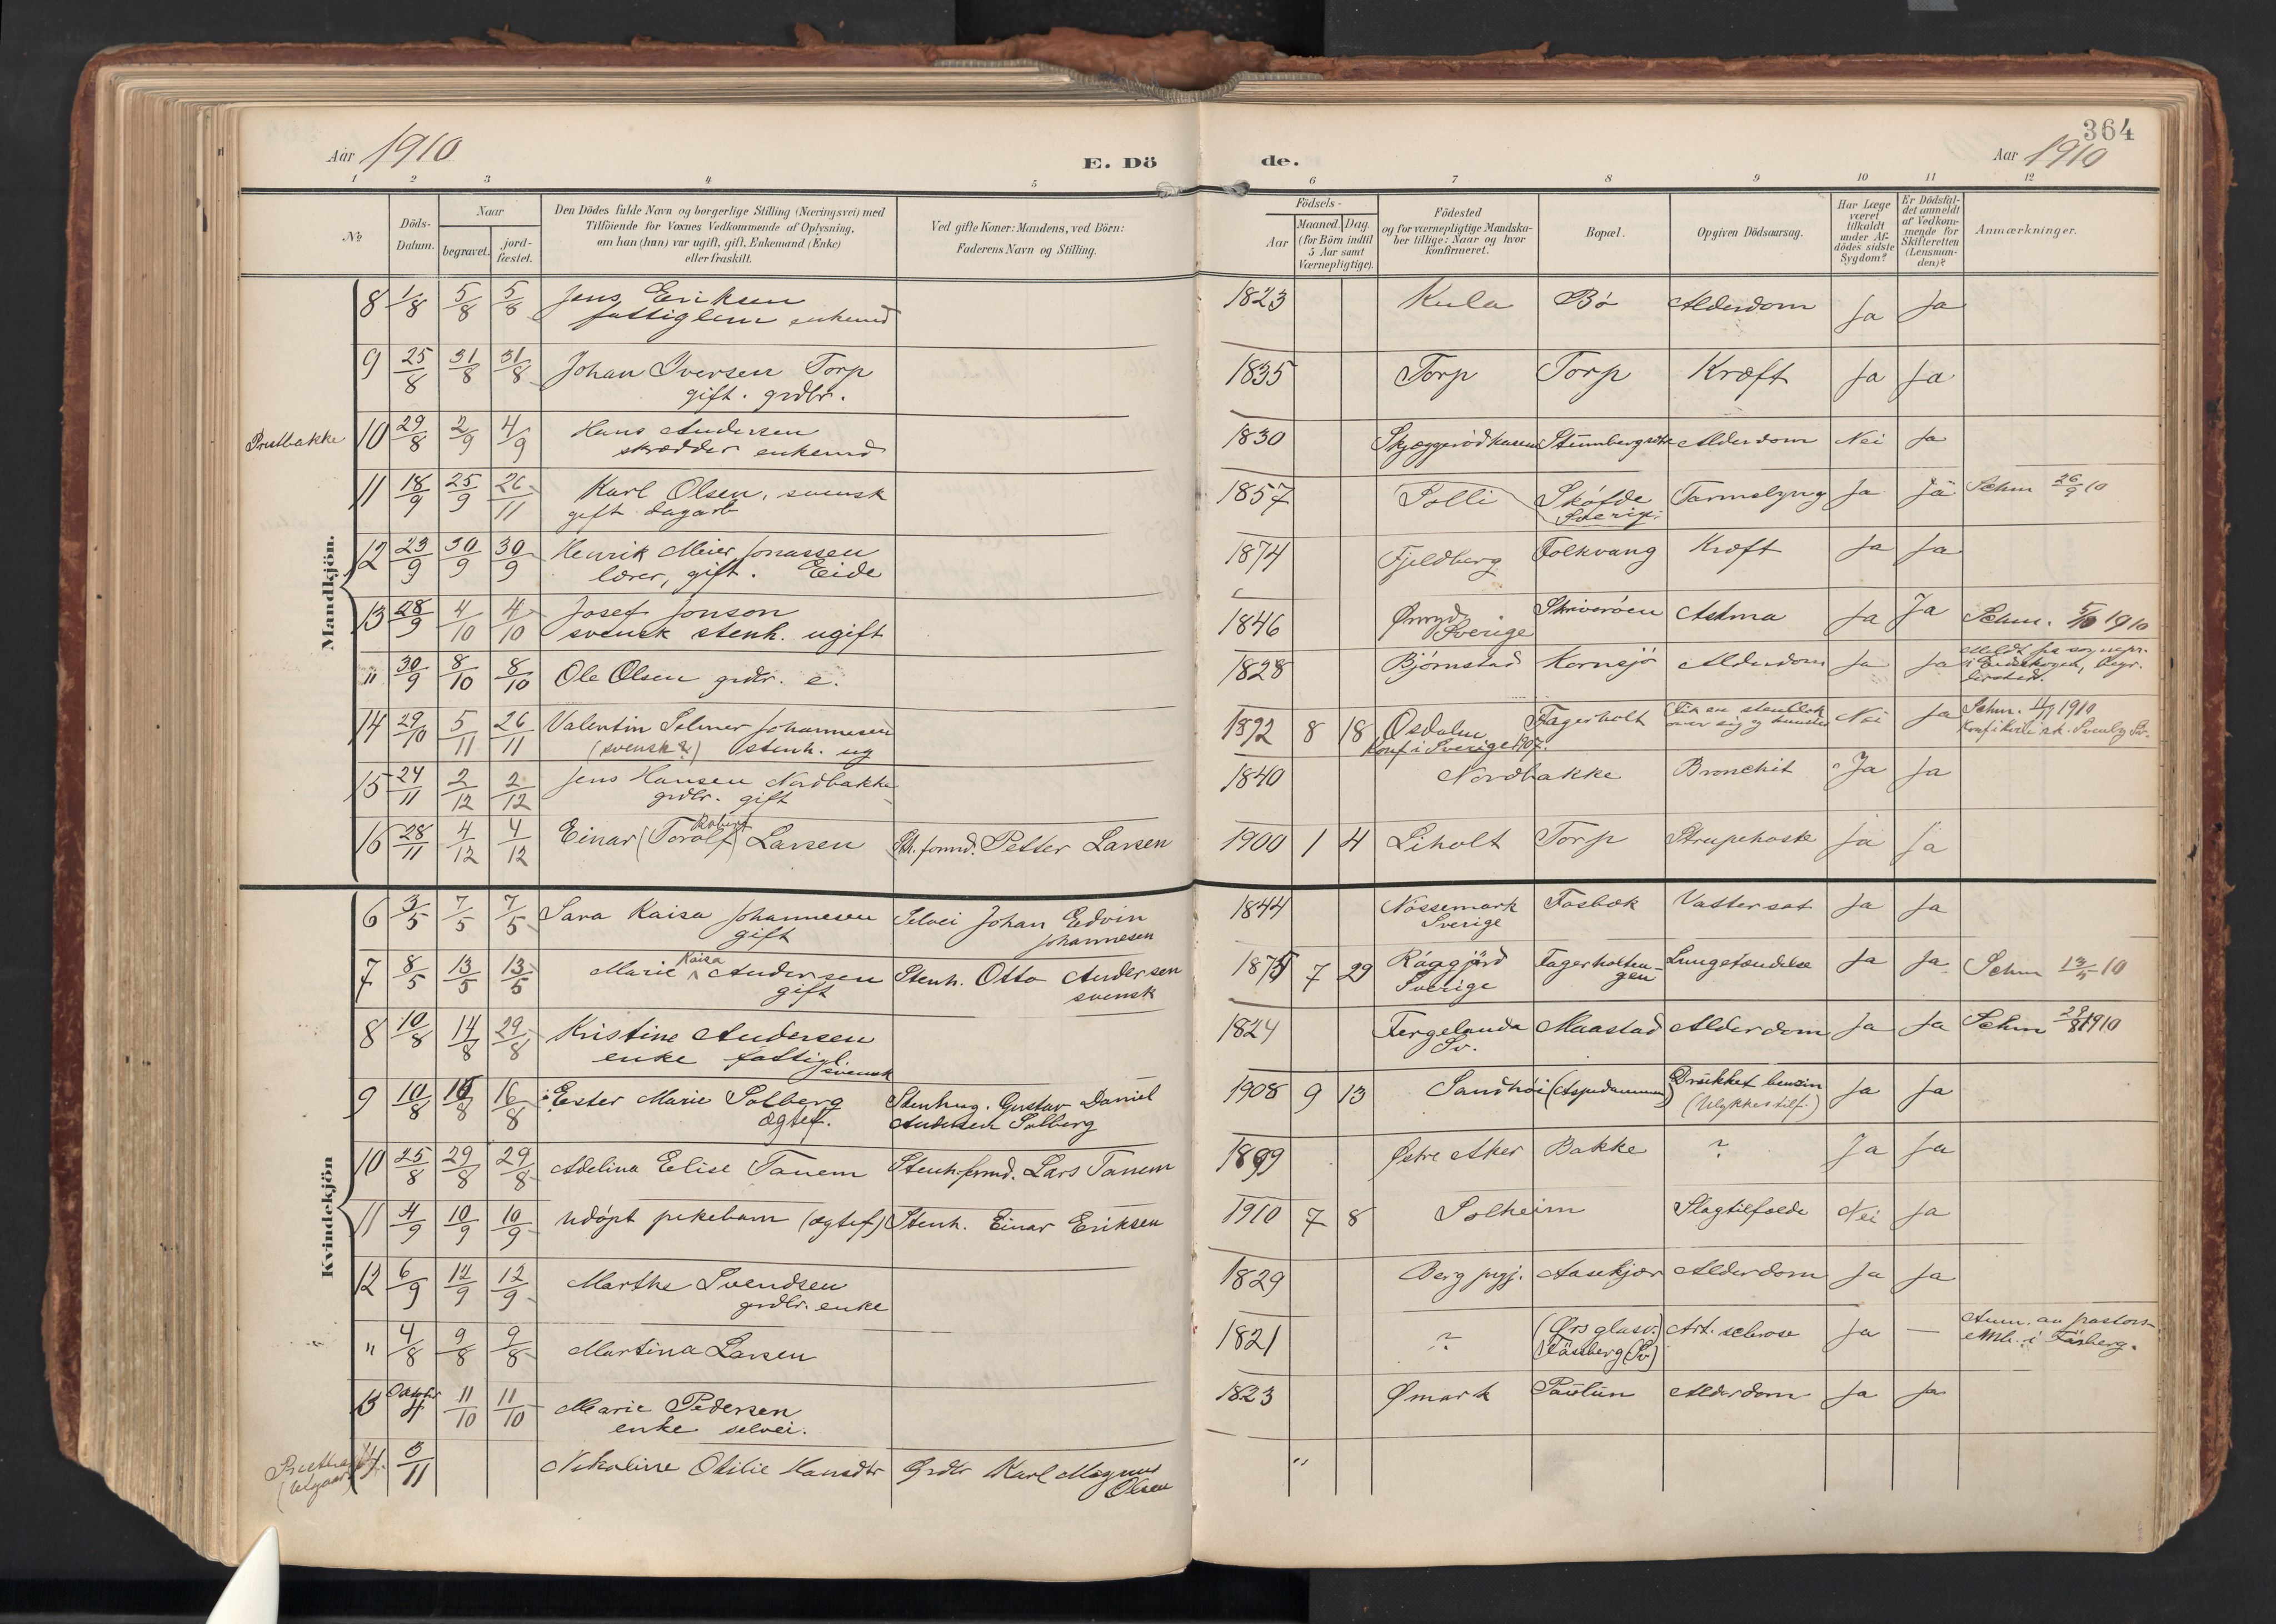 364
Aar 1910
E. Dö de.
Aar 1910
1 2 3 4 5 6 7 8 9 10 11 12
No
Döds-
Datum.
Naar
begravet.
jord-
fæstet.
Den Dödes fulde Navn og borgerlige Stilling (Næringsvei) med
Tilföiende for Voxnes Vedkommende af Oplysning,
om han (hun) var ugift, gift, Enkemand (Enke)
eller fraskilt.
Ved gifte Koner: Mandens, ved Börn:
Faderens Navn og Stilling.
Födsels-
Aar
Maaned. Dag.
(for Börn indtil
5 Aar samt
Værnepligtige).
Födested
og for værnepligtige Mandska-
ber tillige: Naar og hvor
konfirmeret.
Bopæl.
Opgiven Dödsaarsag.
Har Læge
været
tilkaldt
under Af-
dödes sidste
Sygdom?
Er Dödsfal-
det anmeldt
af Vedkom-
mende for
Skifteretten
(Lensman-
den)?
Anmærkninger.
Mandkjön.
8 1/8 5/8 5/8 Jens Eriksen 1823 Kula Bö Alderdom Ja Ja
fattiglem enkemd
9 25/8 31/8 31/8 Johan Iversen Torp 1835 Torp Torp Kræft Ja Ja
gift. grdbr.
Prestbakke 10 29/8 2/9 4/9 Hans Andersen 1830 Alderdom Nei Ja
skrædder enkemd
11 18/9 25/9 26/11 Karl Olsen, svensk 1857 Solli Sköfde Tarmslyng Ja Ja Sehm 26/9 10
gift dagarb Sverige
12 23/9 30/9 30/9 Henrik Meier Jonassen 1874 Fjeldberg Folkvang Kræft Ja Ja
lærer, gift. Eide
13 28/9 4/10 4/10 Josef Jonson 1846 Skriveröen Astma Ja Ja Sehm. 5/10 1910
svensk stenh. ugift Sverige
" 30/9 8/10 8/10 Ole Olsen grdbr. e. 1828 Björnstad Kornsjö Alderdom Ja Ja Meldt fra sognepr.
14 29/10 5/11 26/11 Valentin Selmer Johannesen 1892 8 18 Osdalen Fagerholt Fik en stenblok Nei Ja Sehm. 1910
(svensk?) stenh. ug Konf i Sverige 1907. over sig
15 24/11 2/12 2/12 Jens Hansen Nordbakke 1840 Nordbakke Bronchit Ja Ja
grdbr. gift
16 28/11 4/12 4/12 Einar (Torolf) Robert Larsen Sth. formd. Petter Larsen 1900 1 4 Liholt Torp Strupehoste Ja Ja
Kvindekjön
6 3/5 7/5 7/5 Sara Kaisa Johannesen Selvei Johan Edvin 1844 Nössemark Fosbæk Vattersot Ja Ja
gift Johannesen Sverige
7 8/5 13/5 13/5 Marie Kaisa Andersen Stenh. Otto Andersen 1875 7 29 Råggjärd Fagerholtu- Lungetændelse Ja Ja Sehm 13/5 10
gift svensk Sverige gen
8 10/8 14/8 29/8 Kristine Andersen 1824 Fergelanda Maastad Alderdom Ja Ja Sehm 29/8 1910
enke fattigl. svensk Sv.
9 10/8 16/8 16/8 Ester Marie Solberg Stenhug. Gustav Daniel 1908 9 13 Sandhöi (Aspedammen) Drukket benzin Ja Ja
ægtef. Andersen Solberg (Ulykkestilf.)
10 25/8 29/8 29/8 Adelina Elise Tanem Stenh.formd. Lars Tanem 1899 Östre Aker Bakke ? Ja Ja
11 4/9 10/9 10/9 Udöpt pikebarn (ægtef) Stenh. Einar Eriksen 1910 7 8 Solheim Slagtilfælde Nei Ja
12 6/9 12/9 12/9 Marthe Svendsen 1829 Berg prgj. Aasekjær Alderdom Ja Ja
grdbr. enke
" 4/8 9/8 9/8 Martina Larsen 1821 ? (Örs glasv.) Art. sclerose Ja — Anm. av pastors-
Fässberg (Sv) emb. i Fässberg.
13 4 11/10 11/10 Marie Pedersen 1823 Ömark Paulún Alderdom Ja Ja
enke selvei.
14 3/11 Nikoline Otilie Hansdtr Grdbr Karl Magnus
(Utgaar) Olsen "